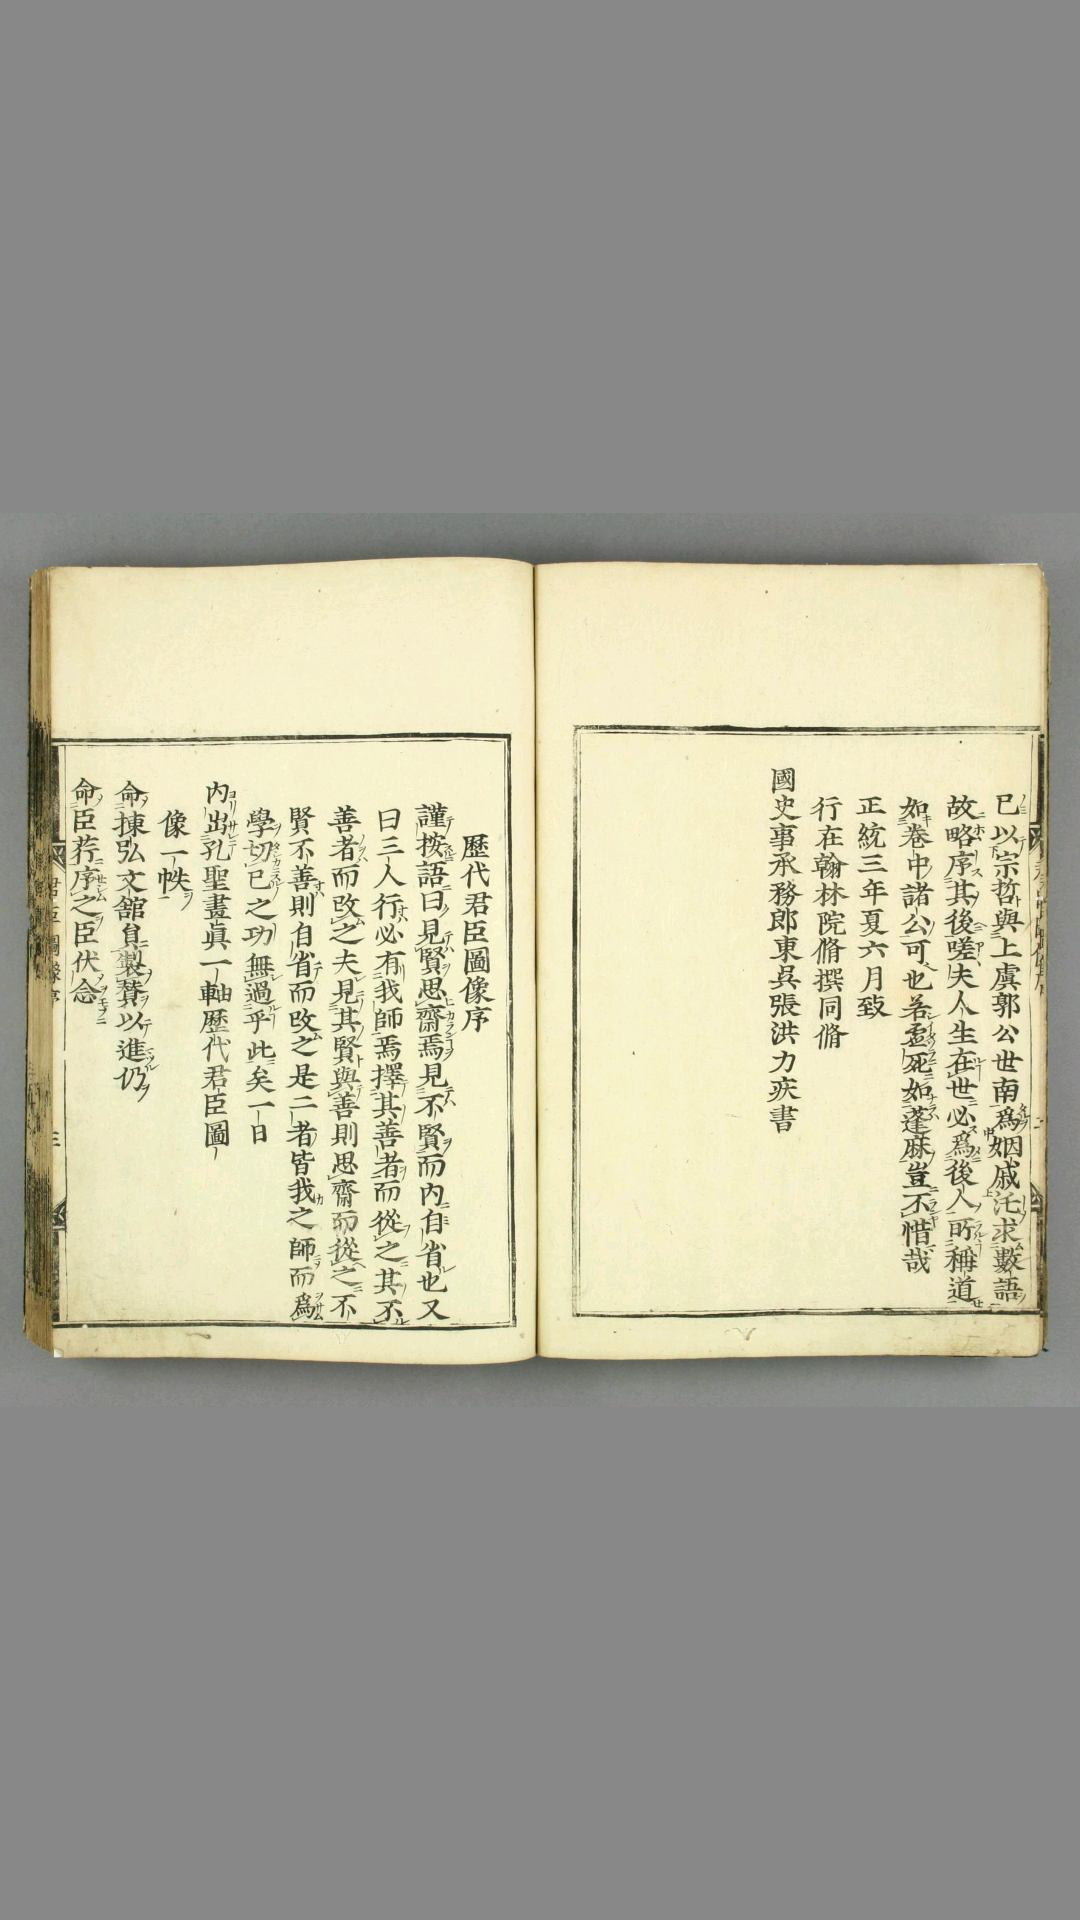 已以宗哲與上虞郭公世南爲姻戚托求數語
故略序其後嗟夫人生在世必爲後人所稱道
如卷中諸公可也若虛死如蓬麻豈不惜哉
正統三年夏六月致
行在翰林院脩撰同脩
國史事承務郎東吳張洪力疾書
歷代君臣圖像序
謹按語曰見賢思齋焉見不賢而内自省也又
曰三人行必有我師焉擇其善者而從之其不
善者而改之夫見其賢與善則思齋而從之不
賢不善則自省而改之是二者皆我之師而爲
學切已之功無過乎此矣一日
内出孔聖畫眞一軸歷代君臣圖
像一帙
命揀弘文舘員製賛以進仍
命臣荇序之臣伏念
君臣圖像序
三